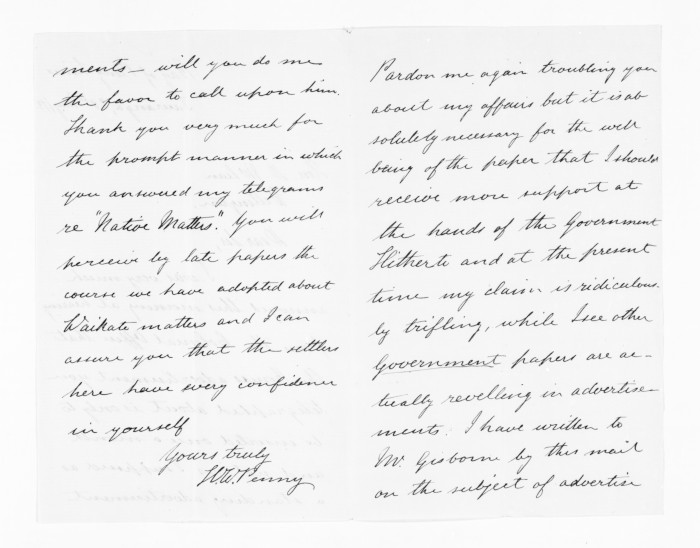 Pardon me again troubling you
about my affairs but it is ab
solutely necessary for the well
being of the paper that I should
receive more support at
the hands of the Government
Hitherto and at the present
time my claim is ridiculous.
ly trifling, while I see other
Government papers are ac-
tually revelling in advertise-
ments. I have written to
Mr. Gisborne by this mail
on the subject of advertise
ments – will you do me
the favor to call upon him.
Thank you very much for
the prompt manner in which
you answered my telegrams
re "Native Matters." You will
perceive by late papers the
course we have adopted about
Waikato matters and I can
assure you that the settlers
here have every confidence
in yourself
Yours truly
Penny